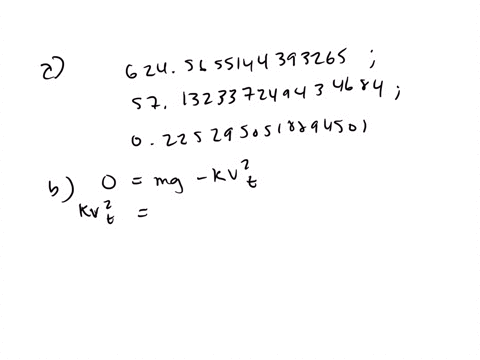 a) 624.5655144393265 ;
57.13233724943 4684 ;
0.2252950518894501
b) 0 = mg - kv²ₜ
kv²ₜ =